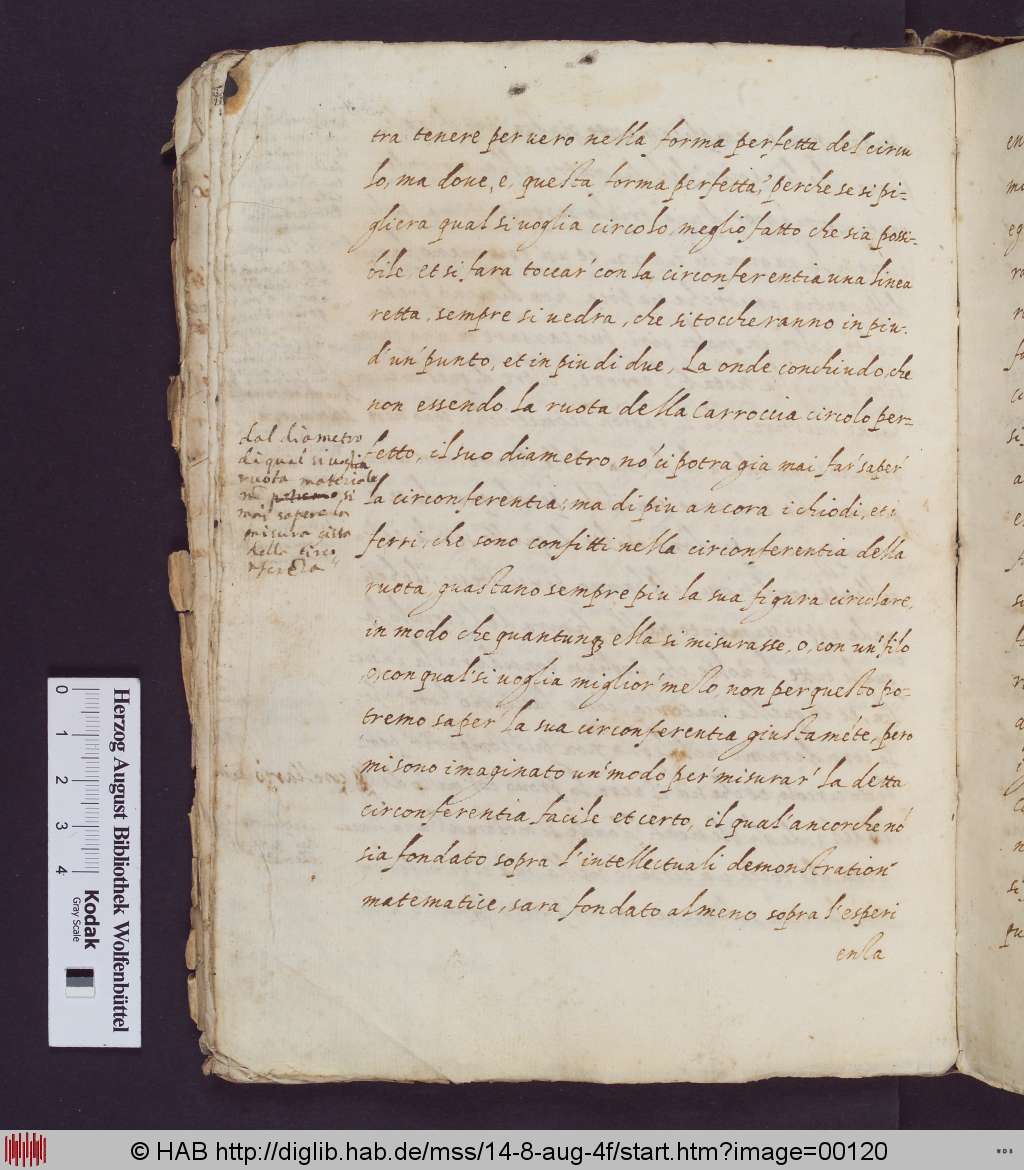 tra tenere per vero nella forma perfetta del circu
lo, ma doue, e, questa forma perfetta? perche se si pi=
gliera qual si uoglia circolo, meglio fatto che sia possi=
bile, et si fara toccar' con la circonferentia una linea
retta, sempre si uedra, che si toccheranno in piu
d'un' punto, et in piu di due, La onde conchiudo, che
non essendo la ruota della Carroccia circolo per=
fetto, il suo diametro nō ci potra gia mai far' saper'
la circonferentia; ma di piu ancora i chiodi, et i
ferri, che sono confitti nella circonferentia della
ruota, guastano sempre piu la sua figura circolare,
in modo che quantunq; ella si misurasse, o, con un' filo
o, con qual' si uoglia miglior' mezo non per questo po=
tremo saper' la sua circonferentia giustamēte, pero
mi sono imaginato un' modo per' misurar' la detta
circonferentia facile et certo, il qual' ancorche nō
sia fondato sopra l'intellectuali demonstration'
matematice, sara fondato almeno sopra l'esperi
enza
dal diametro
di qual si uoglia
ruota materiale
si
mai sapere la
misura gista
della circo
Herzog August Bibliothek Wolfenbüttel
Kodak
Gray Scale
0 1 2 3 4
© HAB http://diglib.hab.de/mss/14-8-aug-4f/start.htm?image=00120